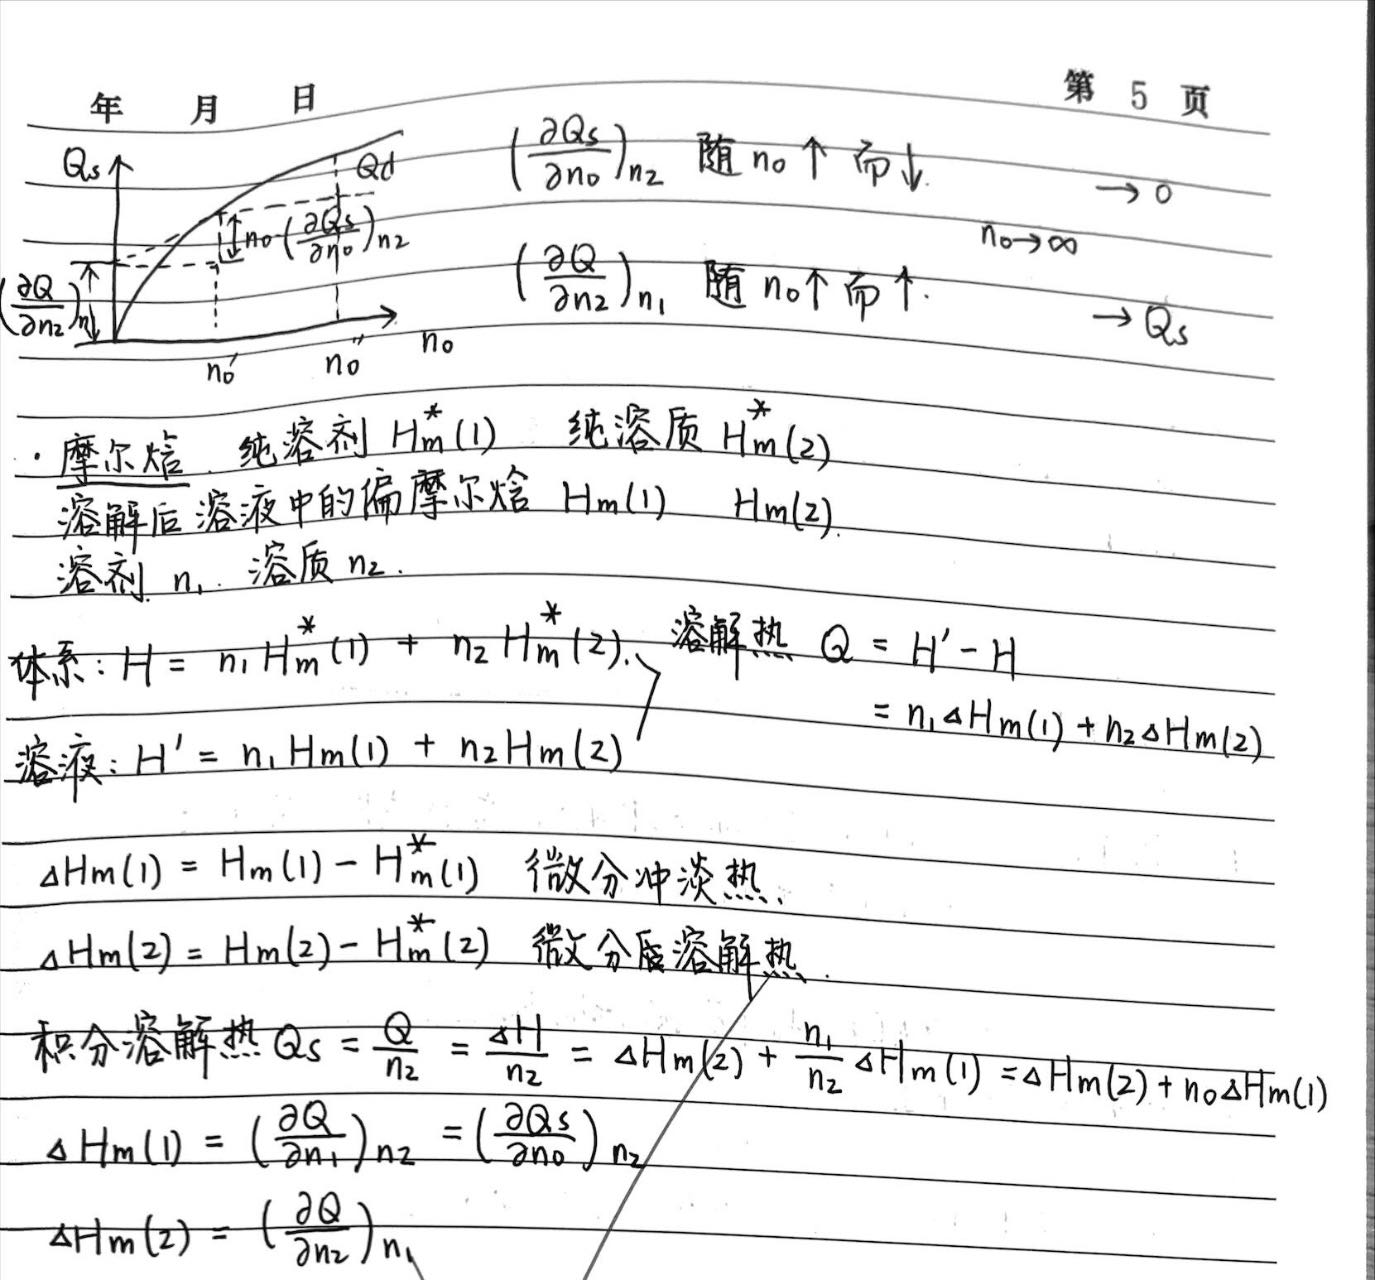 年 月 日 第 5 页
Qs Qd (∂Qs/∂n₀)n₂ 随 n₀ ↑ 而 ↓. → 0
n₀(∂Qs/∂n₀)n₂ n₀→∞
(∂Q/∂n₂)n₁ (∂Q/∂n₂)n₁ 随 n₀↑ 而 ↑. → Qs
n₀' n₀'' n₀
· 摩尔焓. 纯溶剂 H*m(1) 纯溶质 H*m(2)
溶解后溶液中的偏摩尔焓 Hm(1) Hm(2).
溶剂 n₁. 溶质 n₂.
体系: H = n₁H*m(1) + n₂H*m(2). 溶解热 Q = H' - H
= n₁△Hm(1) + n₂△Hm(2)
溶液: H' = n₁Hm(1) + n₂Hm(2)
△Hm(1) = Hm(1) - H*m(1) 微分冲淡热.
△Hm(2) = Hm(2) - H*m(2) 微分溶解热.
积分溶解热 Qs = Q/n₂ = △H/n₂ = △Hm(2) + n₁/n₂ △Hm(1) = △Hm(2) + n₀△Hm(1)
△Hm(1) = (∂Q/∂n₁)n₂ = (∂Qs/∂n₀)n₂
△Hm(2) = (∂Q/∂n₂)n₁